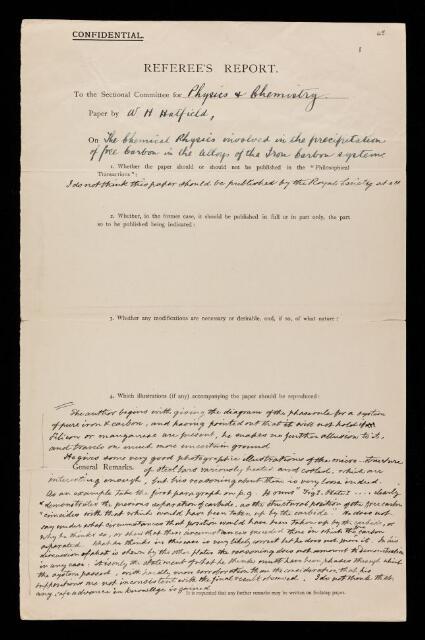 CONFIDENTIAL.
1
REFEREE'S REPORT.
To the Sectional Committee for Physics & Chemistry.
Paper by W H Hatfield,
On The Chemical Physics involved in the precipitation
of free Carbon in the Alloys of the Iron Carbon system.
1. Whether the paper should or should not be published in the "Philosophical
Transactions":
I do not think this paper should be published by the Royal Society at all
2. Whether, in the former case, it should be published in full or in part only, the part
so to be published being indicated:
3. Whether any modifications are necessary or desirable, and, if so, of what nature:
4. Which illustrations (if any) accompanying the paper should be reproduced:
The author begins with giving the diagram of the phase rule for a system
of pure iron & carbon, and having pointed out that it will not hold if
Silicon or manganese are present, he makes no further allusion to it,
and travels on much more uncertain ground
He gives some very good photographic illustrations of the micro-structure
General Remarks.
of steel bars variously heated and cooled, which are
interesting enough, but his reasoning about them is very loose indeed.
As an example take the first paragraph on p 9. clearly
demonstrates the previous separation of carbide, as the structural position of the free carbon
coincides with that which would have been taken up by the carbide. He does not
say under what circumstances that position would have been taken up by the carbide, or
why he thinks so, or show that these circumstances preceded those in which the carbon
separated. What he thinks in this case is very likely correct but he does not prove it. In his
discussion of what is shown by the other plates the reasoning does not amount to demonstration
in any case: it is only the statement of what he thinks must have been phases through which
the system passed, with hardly more corroboration than the consideration that his
suppositions are not inconsistent with the final result observed. I do not think that
any safe advance in knowledge is gained.
It is requested that any further remarks may be written on foolscap paper.